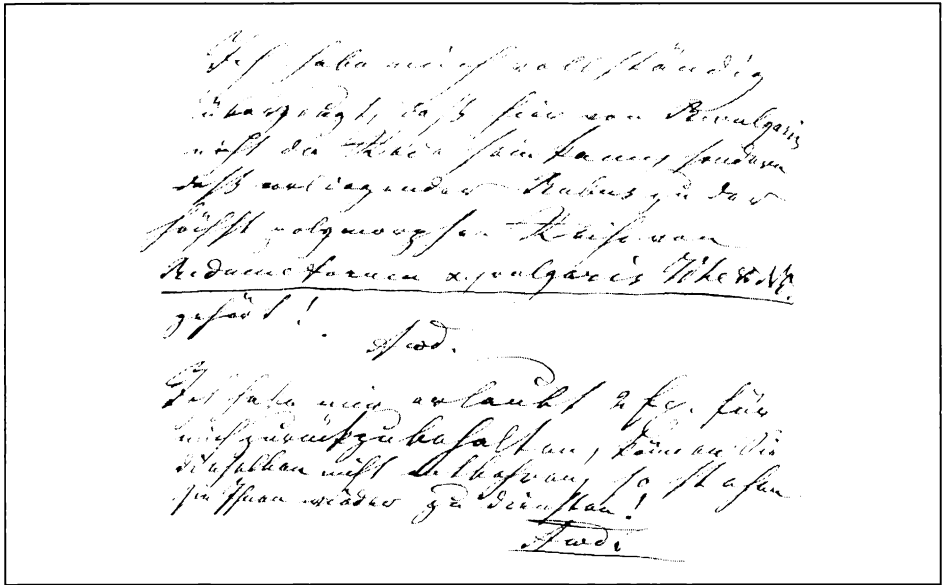 Ich habe mich vollständig
überzeugt, daß hier von R. vulgaris
nicht die Rede sein kann, sondern
daß vorliegender Rubus zu der
höchst polymorphen Reihe von
gehört!
Ich habe mir erlaubt 2 für
mich zurückzubehalten, können Sie
dieselben nicht entbehren, so stehen
sie Ihnen wieder zu diensten!